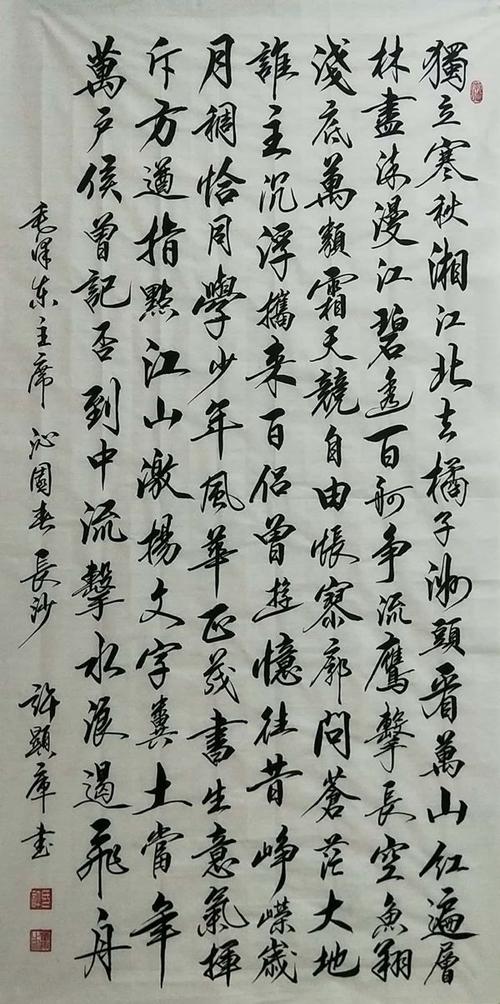 獨立寒秋湘江北去橘子洲頭看萬山红遍層
林盡染漫江碧透百舸争流鷹擊長空魚翔
淺底萬類霜天競自由悵寥廓問蒼茫大地
誰主沉浮攜来百侶曾遊憶往昔崢嶸歲
月稠恰同學少年風華正茂書生意氣揮
斥方遒指點江山激揚文字糞土當年
萬户侯曾記否到中流擊水浪遏飛舟
毛澤东主席 沁園春 長沙 許顯庫書